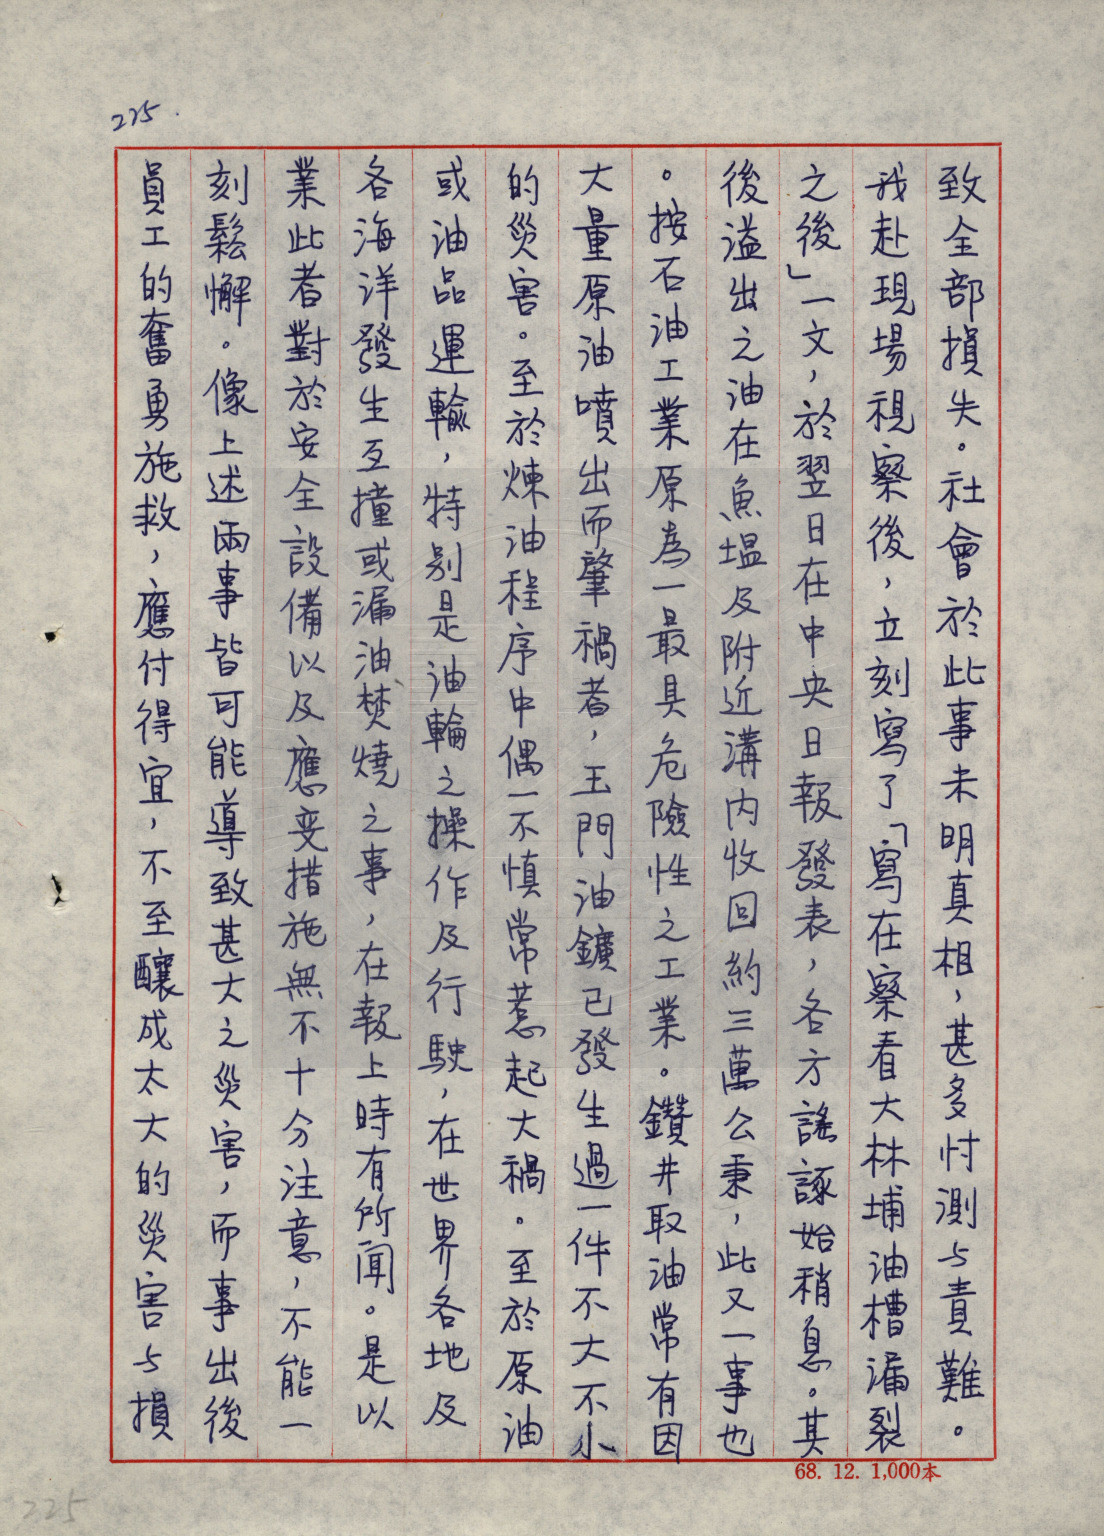 225.
致全部損失。社會於此事未明真相，甚多忖測与責難。
我赴現場視察後，立刻寫了「寫在察看大林埔油槽漏裂
之後」一文，於翌日在中央日報發表，各方謠諑始稍息。其
後溢出之油在魚塭及附近溝內收回約三萬公秉，此又一事也
。按石油工業原為一最具危險性之工業。鑽井取油常有因
大量原油噴出而肇禍者，玉門油鑛已發生過一件不大不小
的災害。至於煉油程序中偶一不慎常惹起大禍。至於原油
或油品運輸，特別是油輪之操作及行駛，在世界各地及
各海洋發生互撞或漏油焚燒之事，在報上時有所聞。是以
業此者對於安全設備以及應变措施無不十分注意，不能一
刻鬆懈。像上述兩事皆可能導致甚大之災害，而事出後
員工的奮勇施救，應付得宜，不至釀成太大的災害与損
68. 12. 1,000本
225